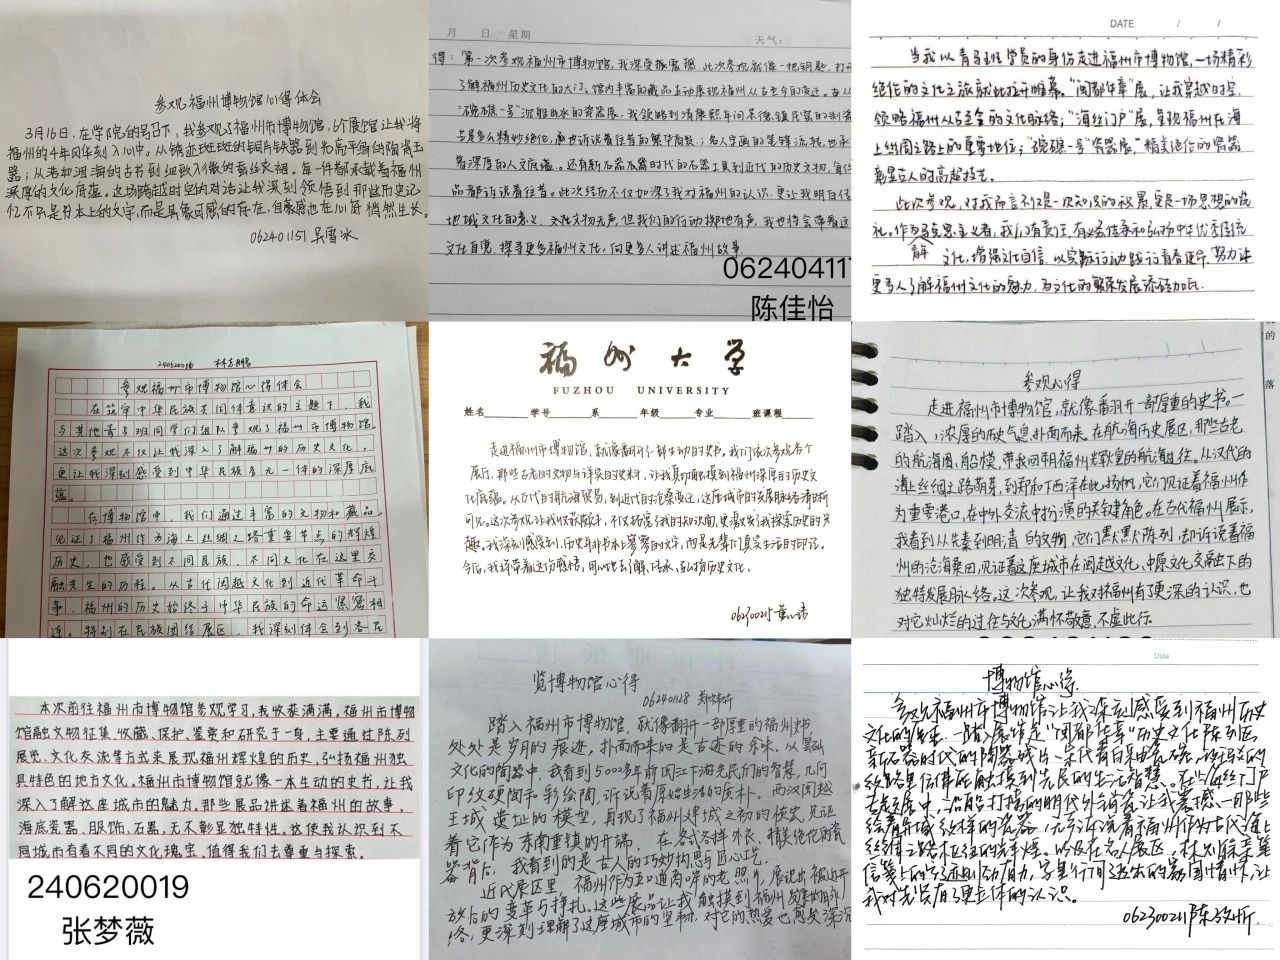 参观福州博物馆心得体会
3月16日,在学院的号召下,我参观了福州市博物馆,6个展馆让我将
福州的4年风华刻入心中。从锈迹斑斑的铜角铁器到书高平角的陶瓷玉
器;从老如泥海的古书到细致入微的香丝衣裙。每一件都承载着福州
深厚的文化底蕴。这场跨越时空的对话让我深刻领悟到那些历史记
忆不只是书本上的文字,而是具象可感的存在,自豪感也在心底悄然生长。
062401151 吴雪冰
月 日 星期 天气:
得:第一次参观福州市博物馆,我深受振震撼,此次参观就像一把钥匙,打开
了解福州历史文化的大门。馆内丰富的藏品生动展现福州从古至今的变迁。
地域文化的意义。文化文物无声,但我们的行动掷地有声,我也将会带着这
文化自觉,探寻更多福州文化,向更多人讲述福州故事
062404117
陈佳怡
DATE / /
当我以青马班学员的身份走进福州市博物馆,一场精彩
绝伦的文化之旅就此拉开帷幕。“闽都华章”展,让我穿越时空,
领略福州从古至今的文化脉络;“海丝门户”展,呈现福州在海
上丝绸之路上的重要地位;“碗礁一号”瓷器展,精美绝伦的瓷器
彰显古人的高超技艺。
此次参观,对我而言不仅是一次知识的积累,更是一场思想的洗
礼。作为马克思主义者,我们有责任,有义务传承和弘扬中华优秀传统
文化,增强文化自信,以实际行动践行青春使命,努力让
更多人了解福州文化的魅力,为文化的繁荣发展添砖加瓦.
240620016 林志鹏
参观福州市博物馆心得体会
在筑牢中华民族共同体意识的主题下,我
与其他青马班同学们组队参观了福州市博物馆。
这次参观不仅让我深入了解福州的历史文化,
更让我深刻感受到中华民族多元一体的深厚底
蕴。
在博物馆中,我们通过丰富的文物和藏品,
见证了福州作为海上丝绸之路重要节点的辉煌
历史,也感受到不同民族、不同文化在这里交
融共生的历程。从古代闽越文化到近代革命斗
争,福州的历史始终与中华民族的命运紧密相
连。特别在民族团结展区,我深刻体会到各民
福州大学
FUZHOU UNIVERSITY
姓名 学号 系 年级 专业 班课程
走进福州市博物馆,就像翻开了一部生动的史书。我们依次参观各个
展厅,那些古老的文物与详实的史料,让我真切触摸到福州深厚的历史文
化底蕴。从古代的航海贸易,到近代的沧桑变迁,这座城市的发展脉络清晰
可见。这次参观让我收获颇丰,不仅拓宽了我的知识面,更激发了我探索历史的兴
趣。我深刻感受到,历史并非书本上寥寥的文字,而是先辈们真实生活的印记。
今后,我将带着这份感悟,用心地去了解、传承、弘扬历史文化。
参观心得
走进福州市博物馆,就像翻开一部厚重的史书。一
踏入,浓厚的历史气息扑面而来。在航海历史展区,那些古老
的航海图、船模,带我回到福州辉煌的航海过往。从汉代的
海上丝绸之路萌芽,到郑和下西洋在此扬帆,它们见证着福州作
为重要港口,在中外交流中扮演的关键角色。在古代福州展示,
我看到从先秦到明清的文物,它们默默陈列,却诉说着福
州的沧海桑田,见证着这座城市在闽越文化、中原文化交融下的
独特发展脉络。这次参观,让我对福州有了更深的认识,也
对它灿烂的过往与文化满怀敬意,不虚此行。
的
落
本次前往福州市博物馆参观学习,我收获满满,福州市博物
馆融文物征集、收藏、保护、鉴赏和研究于一身,主要通过陈列
展览、文化交流等方式来展现福州辉煌的历史,弘扬福州独
具特色的地方文化。福州市博物馆就像一本生动的史书,让我
深入了解这座城市的魅力。那些展品讲述着福州的故事,
海底瓷器、服饰、石器,无不彰显独特性。这使我认识到不
同城市有着不同的文化瑰宝,值得我们去尊重与探索。
240620019
张梦薇
览博物馆心得
062401128
踏入福州市博物馆,就像翻开一部厚重的福州书,
处处是岁月的痕迹,扑面而来的是古迹的余味。从昙石山
文化的陶器中,我看到5000多年前闽江下游先民们的智慧,几何
印纹硬陶和彩绘陶,诉说着原始生活的质朴。两汉闽越
王城遗址的模型,再现了福州建城之初的恢宏,见证
着它作为东南重镇的开端。在各式各样外衣、精美绝伦的瓷
器背后,我看到的是古人的巧妙构思与匠心工艺。
近代展区里,福州作为五口通商口岸的老照片,展现出被迫开
放后的变革与挣扎。这些展品让我触摸到福州发展的脉
络,更深刻理解了这座城市的坚韧,对它的热爱也愈发深沉
Date
博物馆心得.
参观福州市博物馆让我深刻感受到福州历史
文化的
新石器时代的陶器碎片、宋代青白釉
纹路里仿佛能触摸到先民的生活智慧。在“海丝门户”
绘着异域纹样的瓷器,无不诉说着福州作为古代海上
丝绸之路枢纽的辉煌。以及在名人展区,林则徐亲笔
信笺上的字迹刚劲有力,字里行间透出的家国情怀,让
我对先贤有了更立体的认识。
062300211 陈